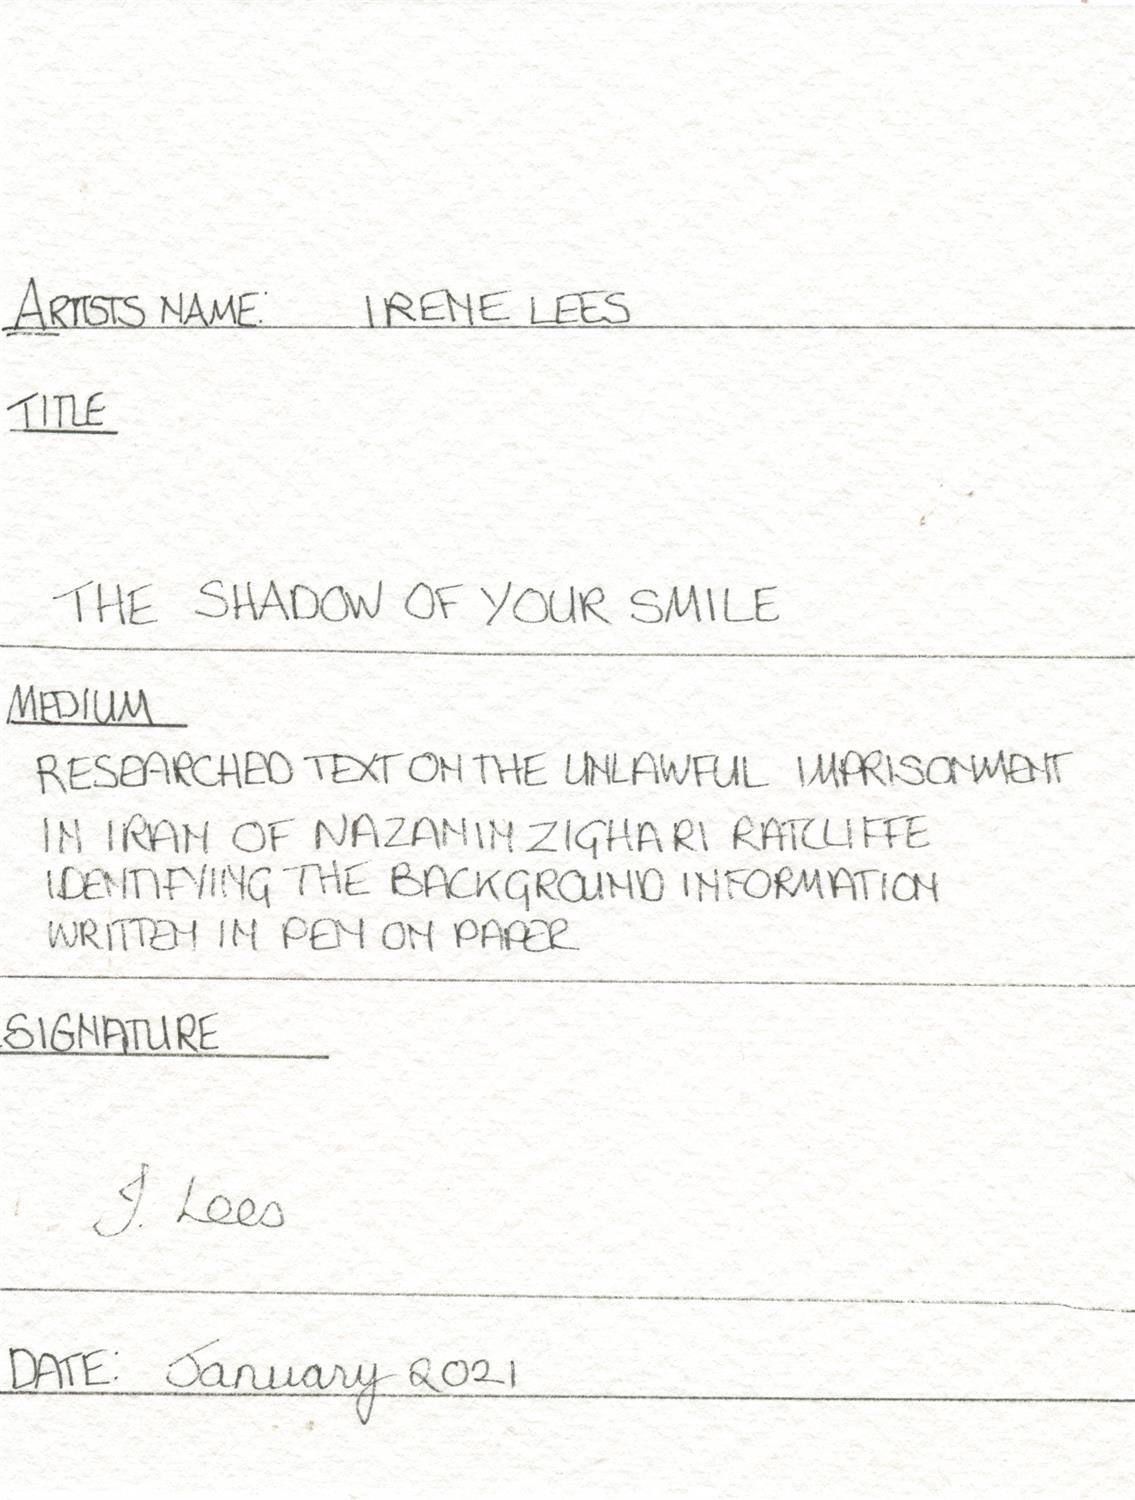 ARTISTS NAME: IRENE LEES
TITLE
THE SHADOW OF YOUR SMILE
MEDIUM
RESEARCHED TEXT ON THE UNLAWFUL IMPRISONMENT
IN IRAN OF NAZANIN ZIGHARI RATCLIFFE
IDENTIFYING THE BACKGROUND INFORMATION
WRITTEN IN PEN ON PAPER
SIGNATURE
I. Lees
DATE: January 2021